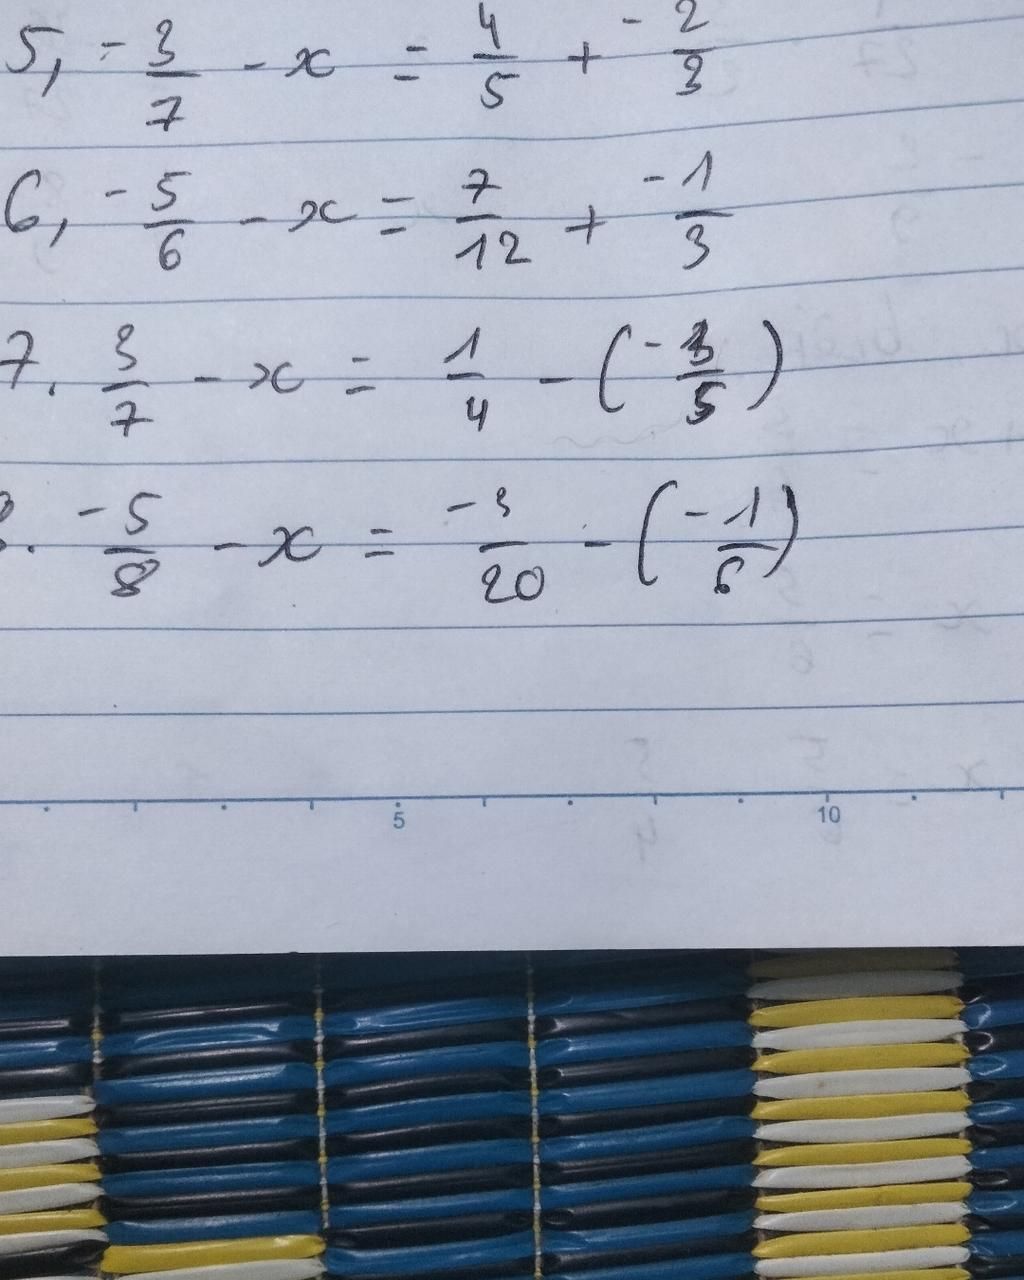 5, -3/7 - x = 4/5 + -2/3
6, -5/6 - x = 7/12 + -1/3
7. 3/7 - x = 1/4 - (-3/5)
. -5/8 - x = -3/20 - (-1/6)
5 10